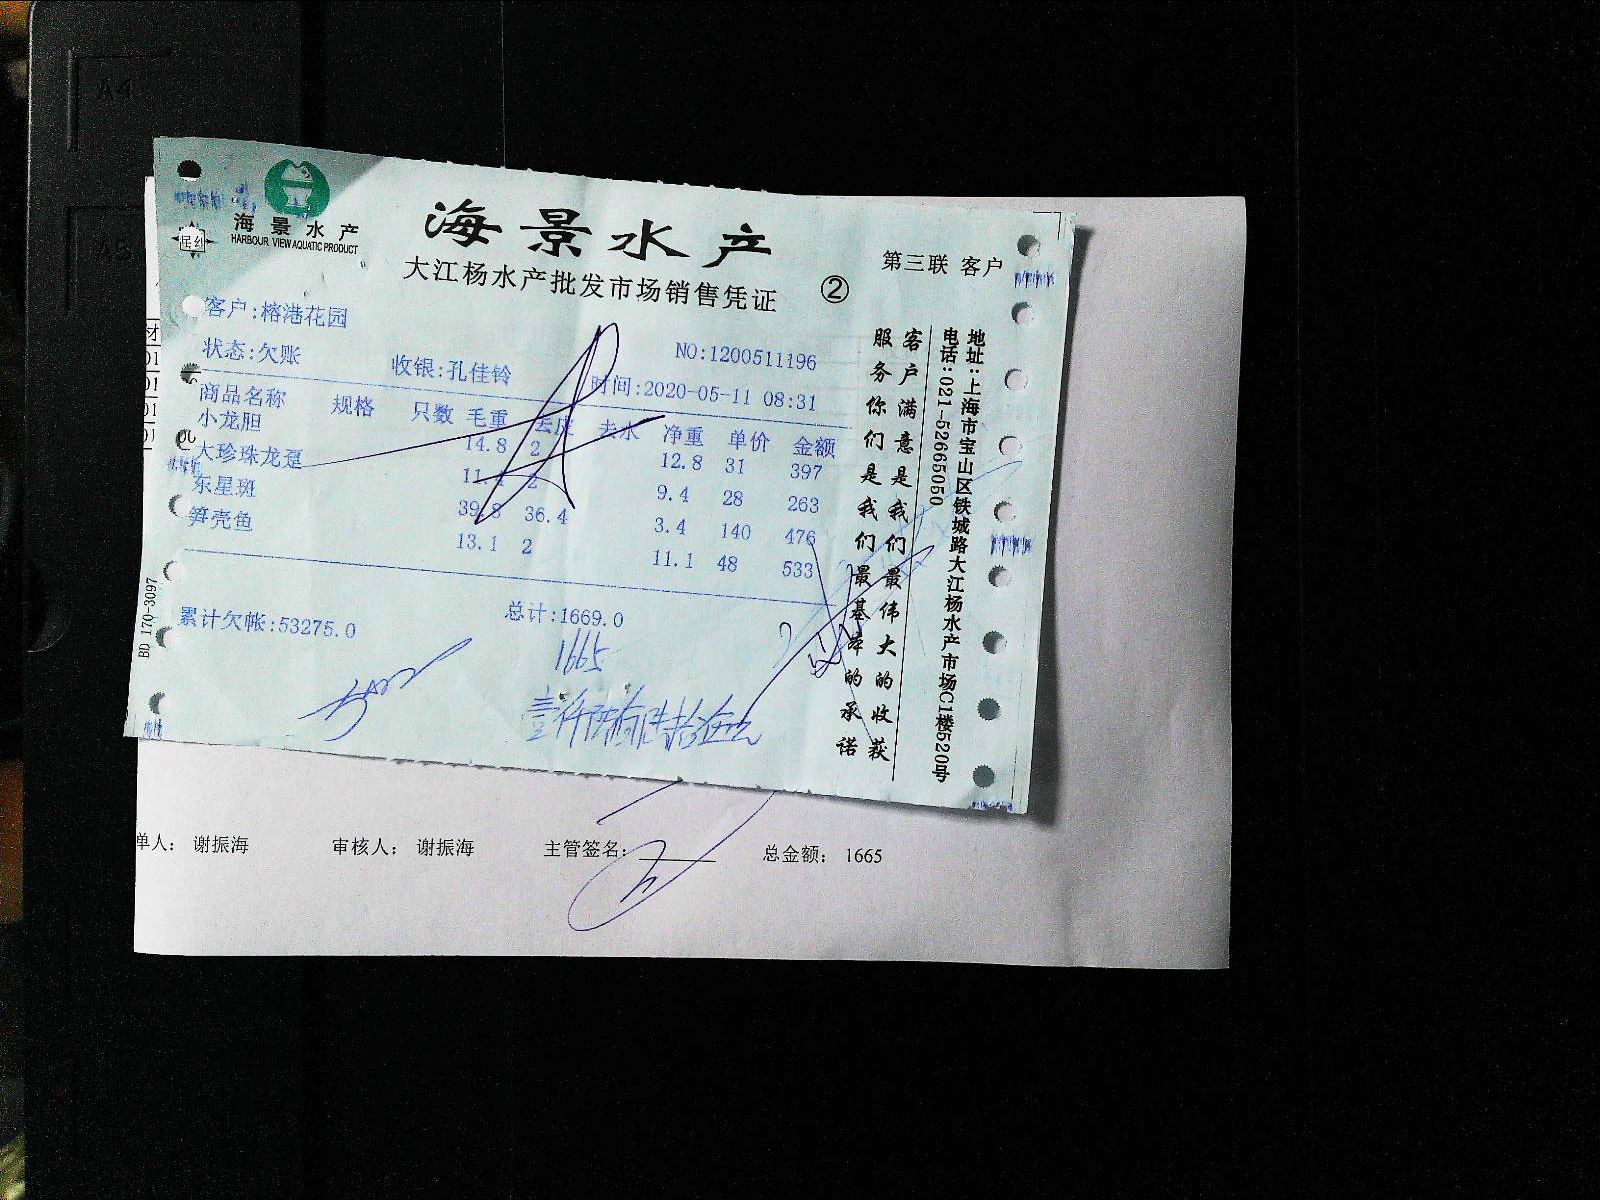 A4
海景水产
HARBOUR VIEW AQUATIC PRODUCT
海景水产
大江杨水产批发市场销售凭证
②
第三联 客户
客户:榕港花园
状态:欠账
收银:孔佳铃
NO:1200511196
时间:2020-05-11 08:31
商品名称 规格 只数 毛重 去皮 去水 净重 单价 金额
小龙胆 14.8 2 12.8 31 397
大珍珠龙趸 11.4 2 9.4 28 263
东星斑 39.8 36.4 3.4 140 476
笋壳鱼 13.1 2 11.1 48 533
累计欠帐:53275.0
总计:1669.0
1665
壹仟陆佰陆拾伍元
客户满意是我们最伟大的收获
服务你们是我们最基本的承诺
地址:上海市宝山区铁城路大江杨水产市场C1楼520号
电话:021-52665050
BD 170-3097
单人: 谢振海
审核人: 谢振海
主管签名:
总金额: 1665